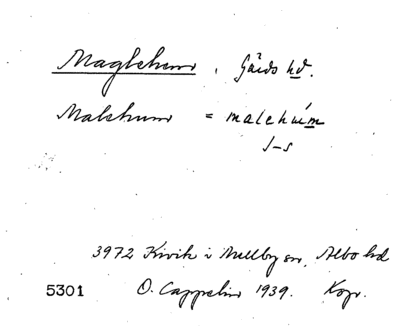 Maglehem, Gärds hd.
Malehum = malehúm
1-s
3972 Kivik i Mellby sn, Albo hd
5301 O. Cappelin 1939. Kopr.